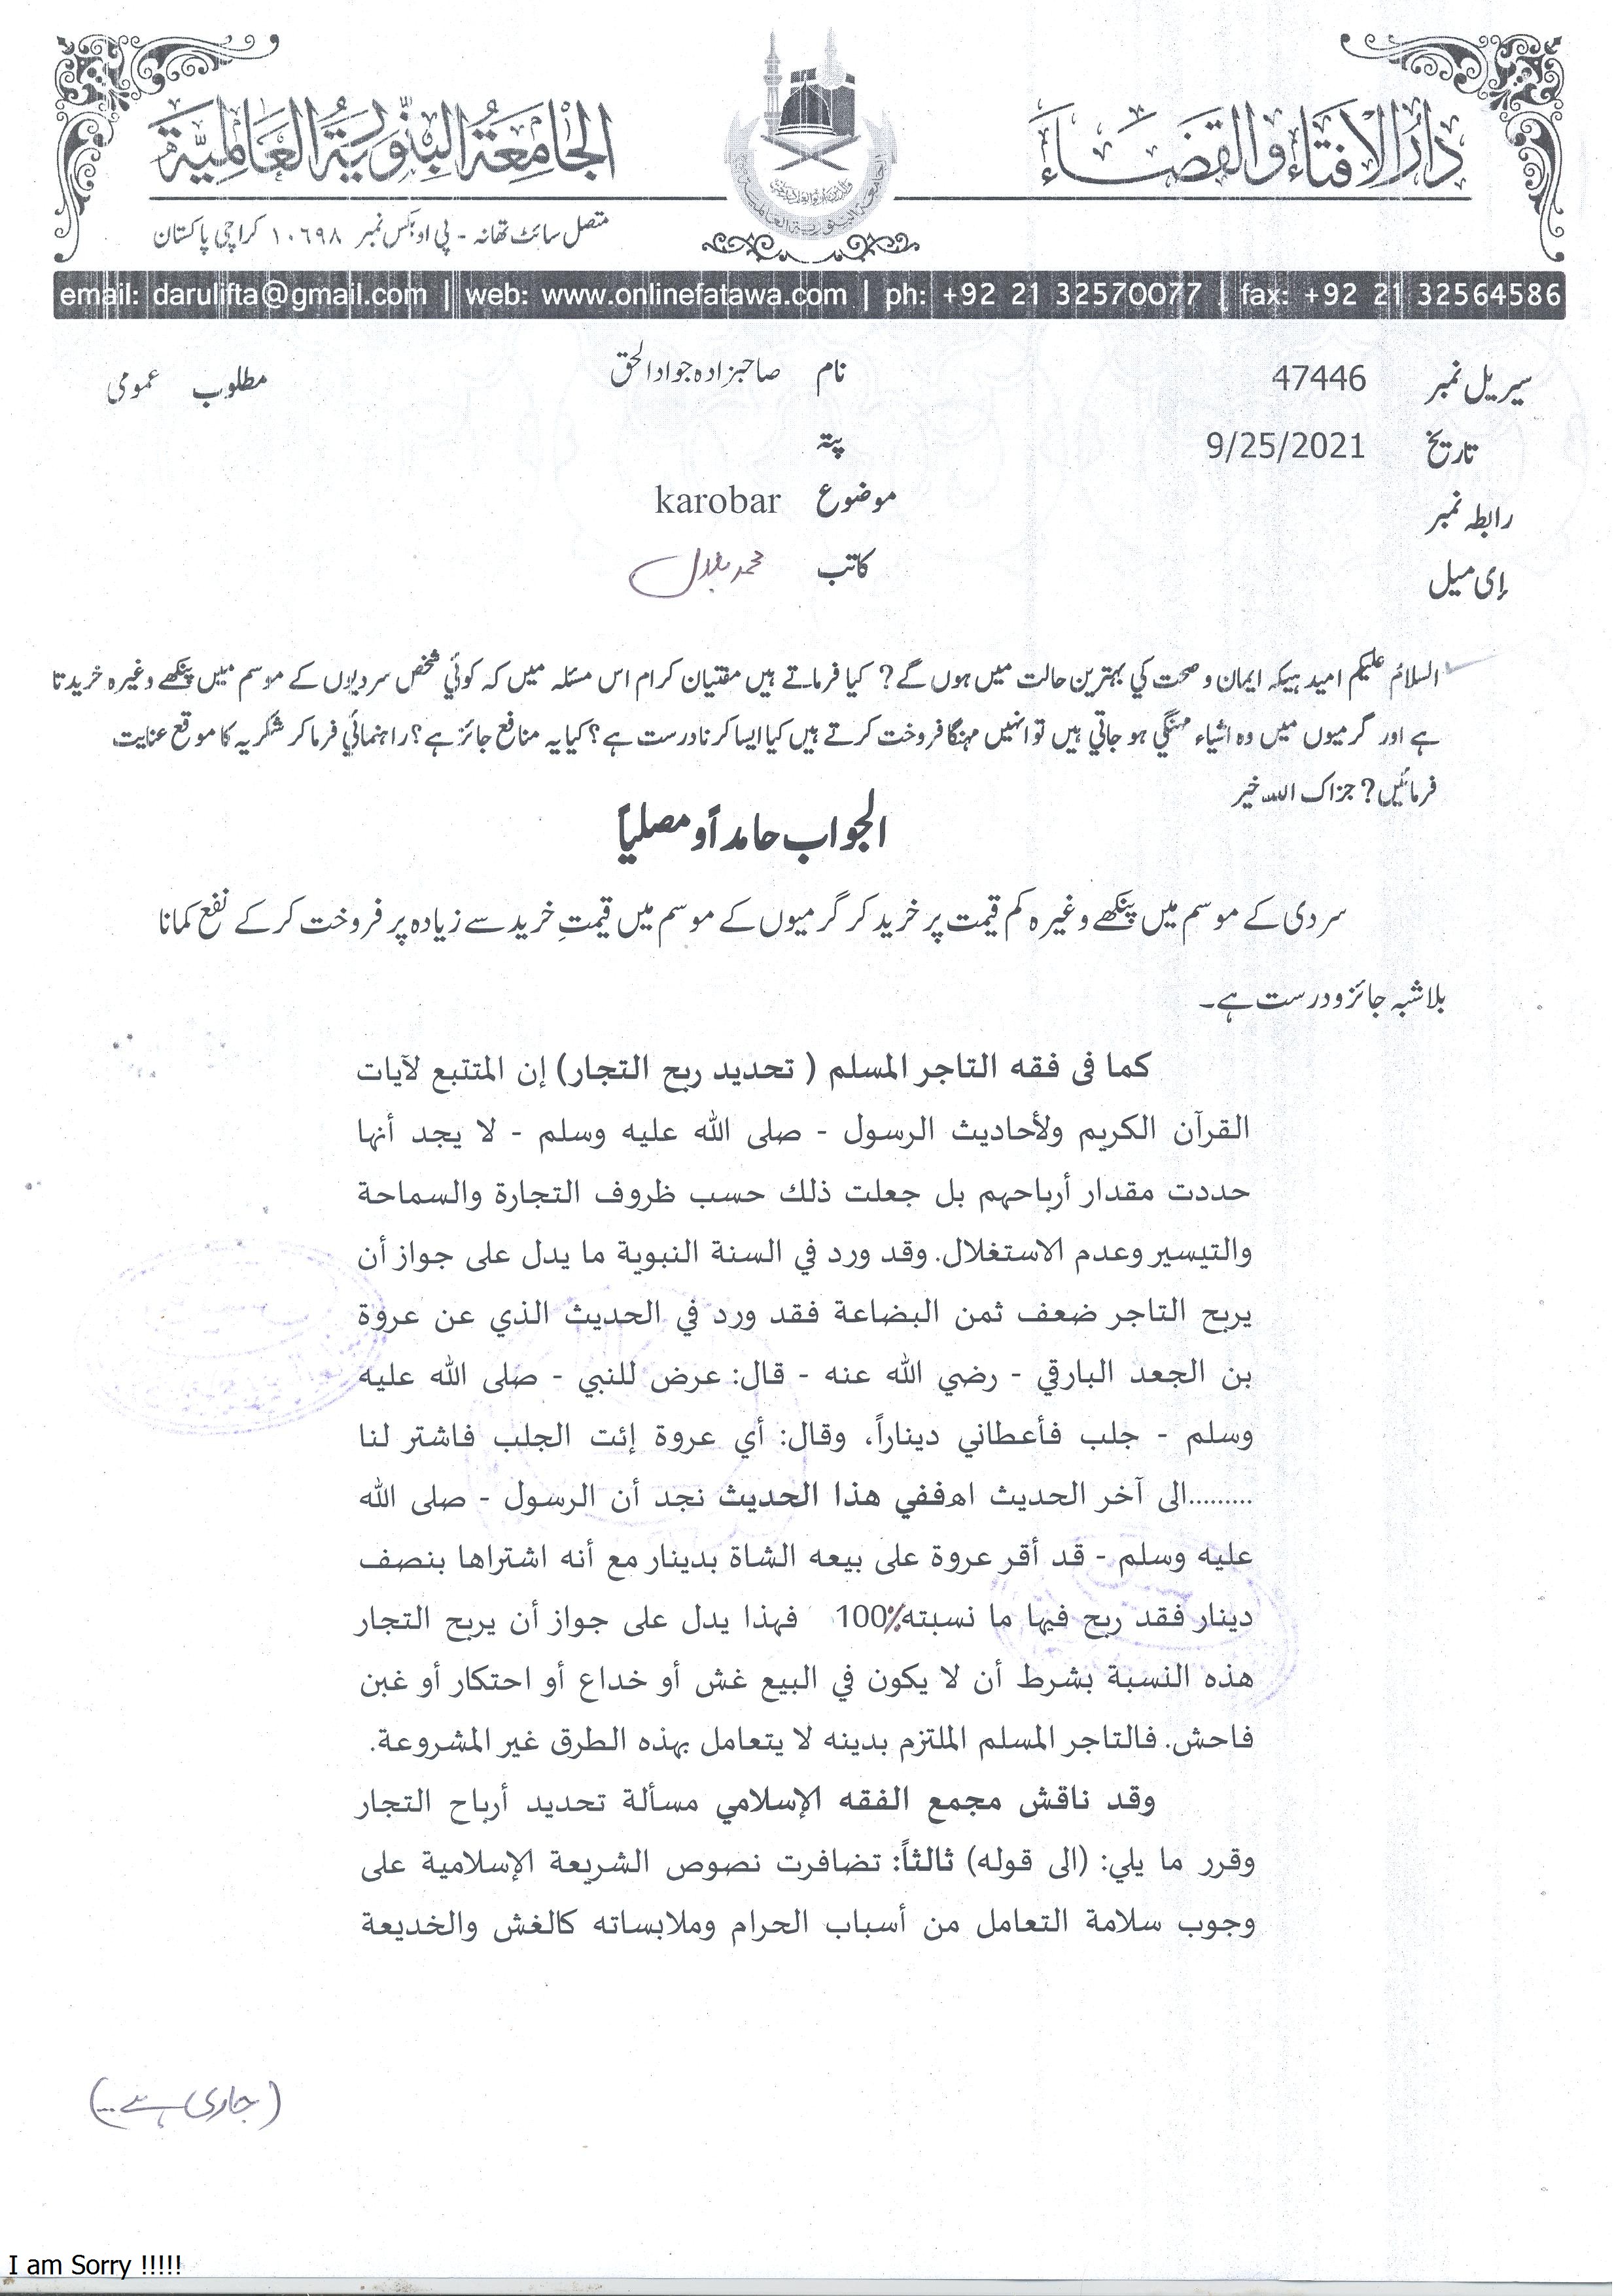 دار الافتاء والقضاء
الجامعة البنورية العالمية
متصل سائٹ تھانہ - پی او بکس نمبر ۱۰۶۹۸ کراچی پاکستان
email: darulifta@gmail.com | web: www.onlinefatawa.com | ph: +92 21 32570077 | fax: +92 21 32564586
سیریل نمبر 47446 نام صاحبزادہ جواد الحق مطلوب عمومی
تاریخ 9/25/2021 پتہ
رابطہ نمبر موضوع karobar
إی میل کاتب محمد بلال
السلامُ علیکم امید ہیکہ ایمان و صحت کی بہترین حالت میں ہوں گے؟ کیا فرماتے ہیں مفتیان کرام اس مسئلہ میں کہ کوئی شخص سردیوں کے موسم میں پنکھے وغیرہ خریدتا
ہے اور گرمیوں میں وہ اشیاء مہنگی ہو جاتی ہیں تو انہیں مہنگا فروخت کرتے ہیں کیا ایسا کرنا درست ہے؟ کیا یہ منافع جائز ہے؟ راہنمائی فرما کر شکریہ کا موقع عنایت
فرمائیں؟ جزاک اللہ خیر
الجواب حامداً و مصلیاً
سردی کے موسم میں پنکھے وغیرہ کم قیمت پر خرید کر گرمیوں کے موسم میں قیمتِ خرید سے زیادہ پر فروخت کر کے نفع کمانا
بلاشبہ جائز و درست ہے۔
كما فى فقه التاجر المسلم ( تحديد ربح التجار) إن المتتبع لآيات
القرآن الكريم ولأحاديث الرسول - صلى الله عليه وسلم - لا يجد أنها
حددت مقدار أرباحهم بل جعلت ذلك حسب ظروف التجارة والسماحة
والتيسير وعدم الاستغلال. وقد ورد في السنة النبوية ما يدل على جواز أن
يربح التاجر ضعف ثمن البضاعة فقد ورد في الحديث الذي عن عروة
بن الجعد البارقي - رضي الله عنه - قال: عرض للنبي - صلى الله عليه
وسلم - جلب فأعطاني ديناراً، وقال: أي عروة إئت الجلب فاشتر لنا
.........الى آخر الحديث اهففي هذا الحديث نجد أن الرسول - صلى الله
عليه وسلم - قد أقر عروة على بيعه الشاة بدينار مع أنه اشتراها بنصف
دينار فقد ربح فيها ما نسبته100% فهذا يدل على جواز أن يربح التجار
هذه النسبة بشرط أن لا يكون في البيع غش أو خداع أو احتكار أو غبن
فاحش. فالتاجر المسلم الملتزم بدينه لا يتعامل بهذه الطرق غير المشروعة.
وقد ناقش مجمع الفقه الإسلامي مسألة تحديد أرباح التجار
وقرر ما يلي: (الى قوله) ثالثاً: تضافرت نصوص الشريعة الإسلامية على
وجوب سلامة التعامل من أسباب الحرام وملابساته كالغش والخديعة
(جاری ہے...)
I am Sorry !!!!!